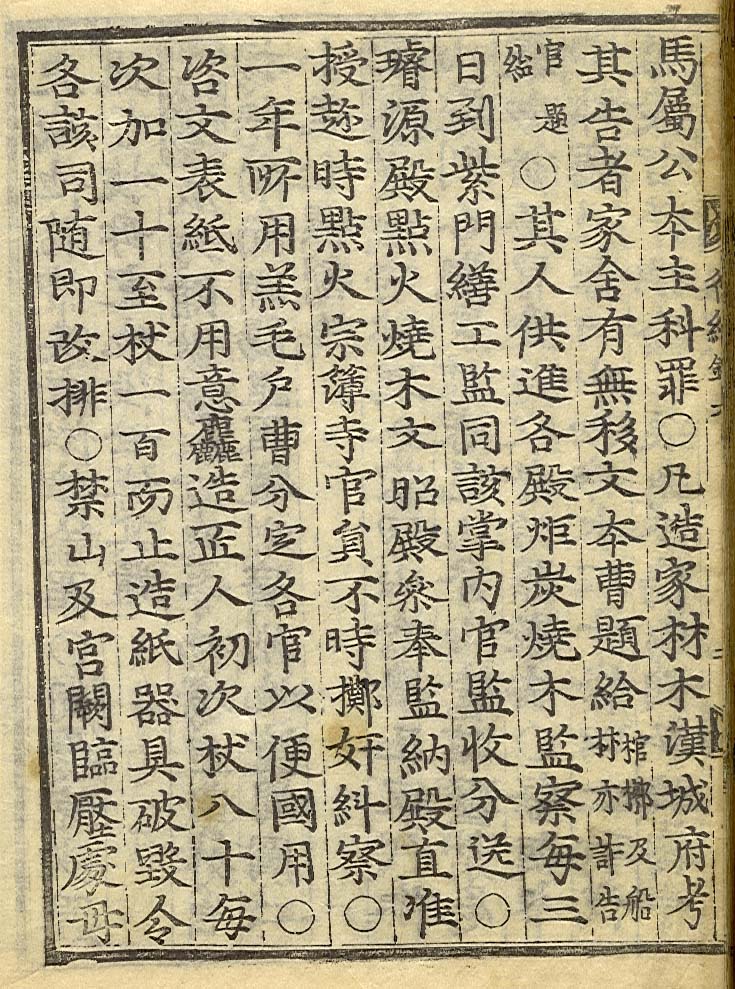 馬屬公本主科罪○凡造家材木漢城府考
其告者家舍有無移文本曹題給棺槨及船材亦許告
官題給○其人供進各殿炬炭燒木監察每三
日到紫門繕工監同該掌內官監收分送○
璿源殿點火燒木文昭殿叅奉監納殿直准
授趂時點火宗簿寺官負不時擲奸糾察○
一年所用羔毛戶曹分定各官以便國用○
咨文表紙不用意麤造匠人初次杖八十每
次加一十至杖一百而止造紙器具破毀令
各該司随即改排○禁山及宮闕臨壓處毋